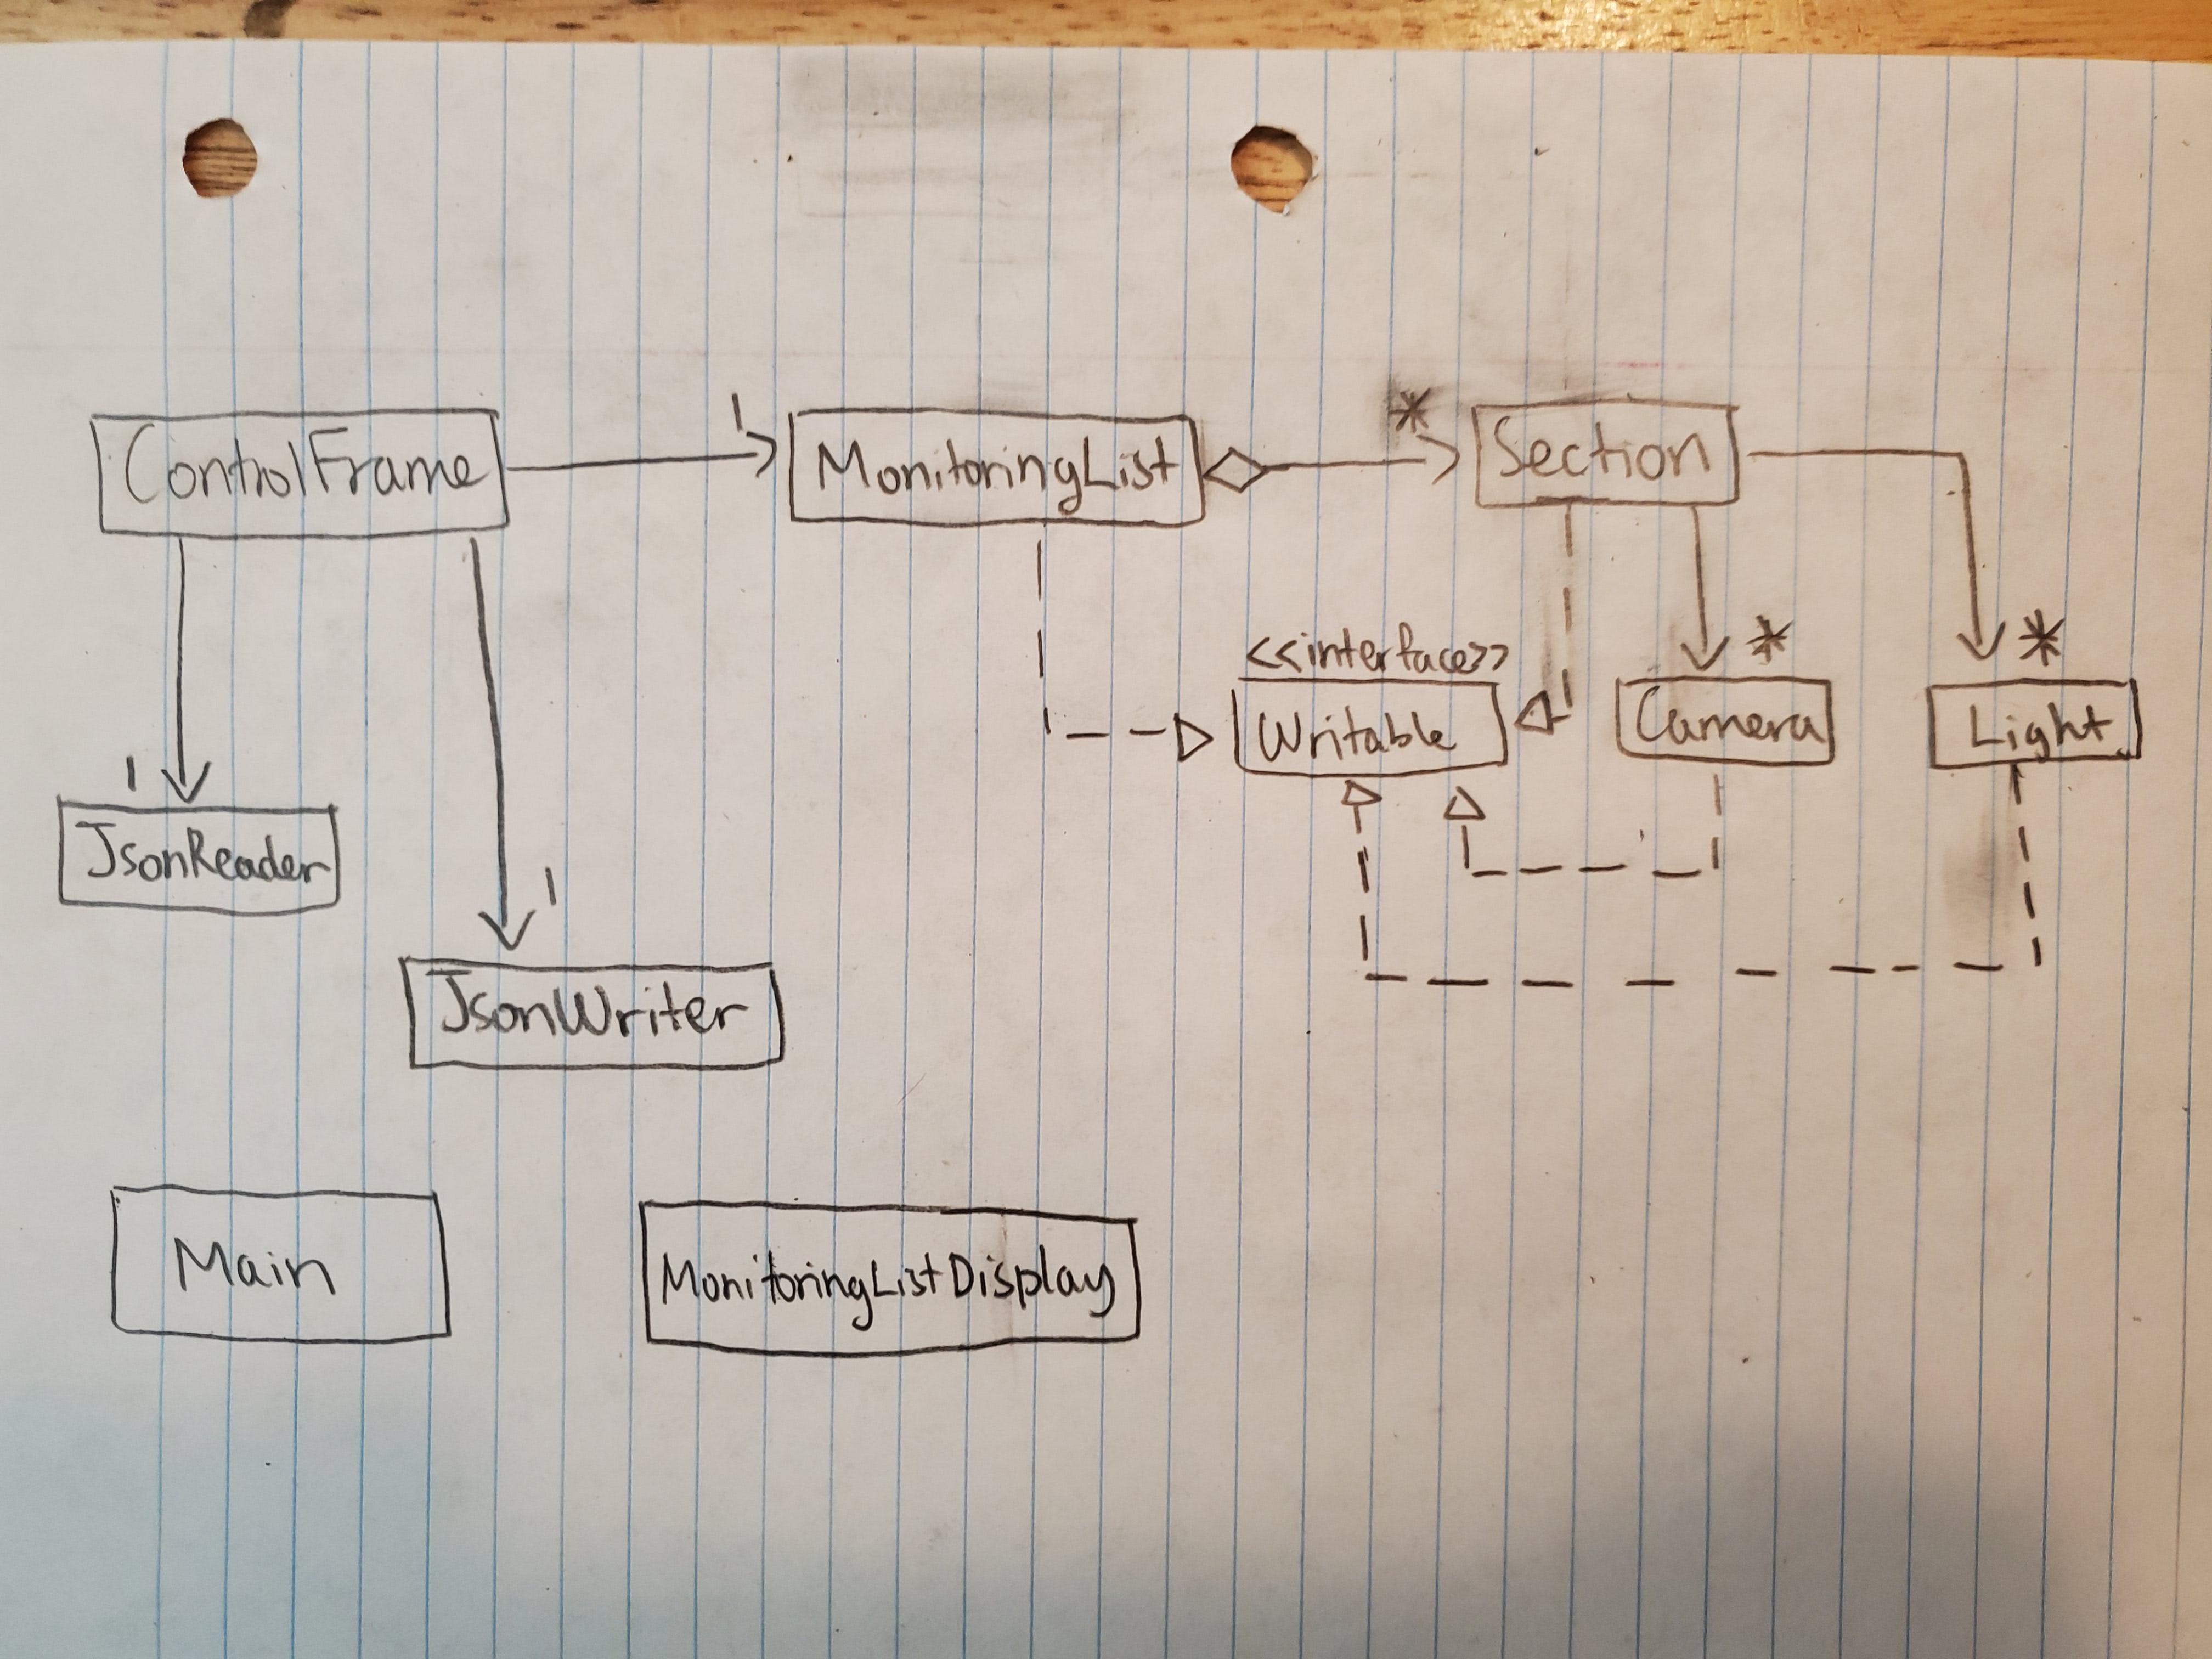 1
*
ControlFrame
MonitoringList
Section
<<interface>>
*
*
Writable
Camera
Light
1
JsonReader
1
JsonWriter
Main
MonitoringListDisplay